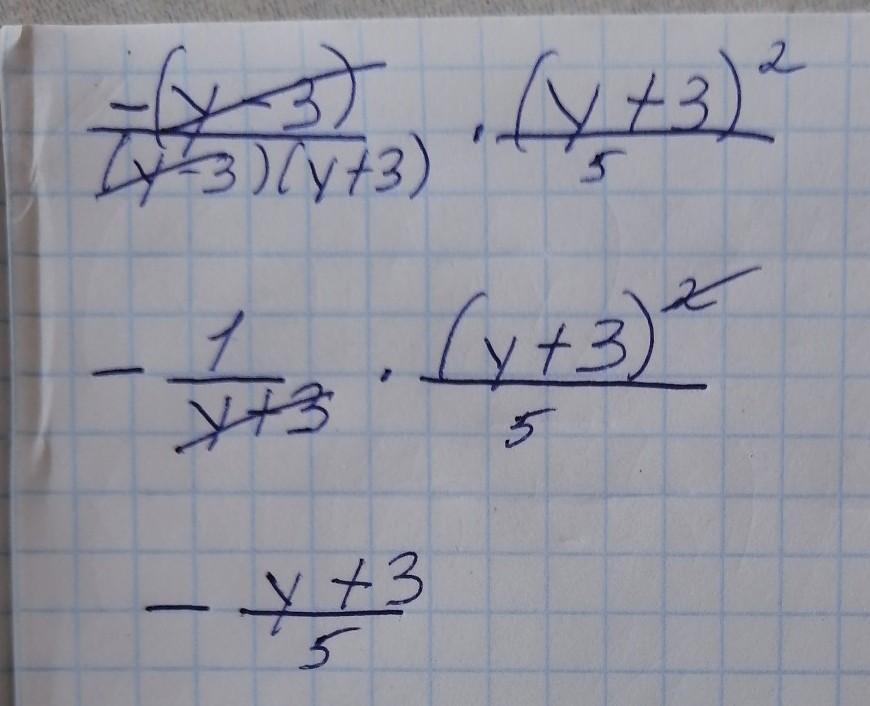 -(y-3)
(y-3)(y+3) · (y+3)²
5
- 1
y+3 · (y+3)²
5
- y+3
5